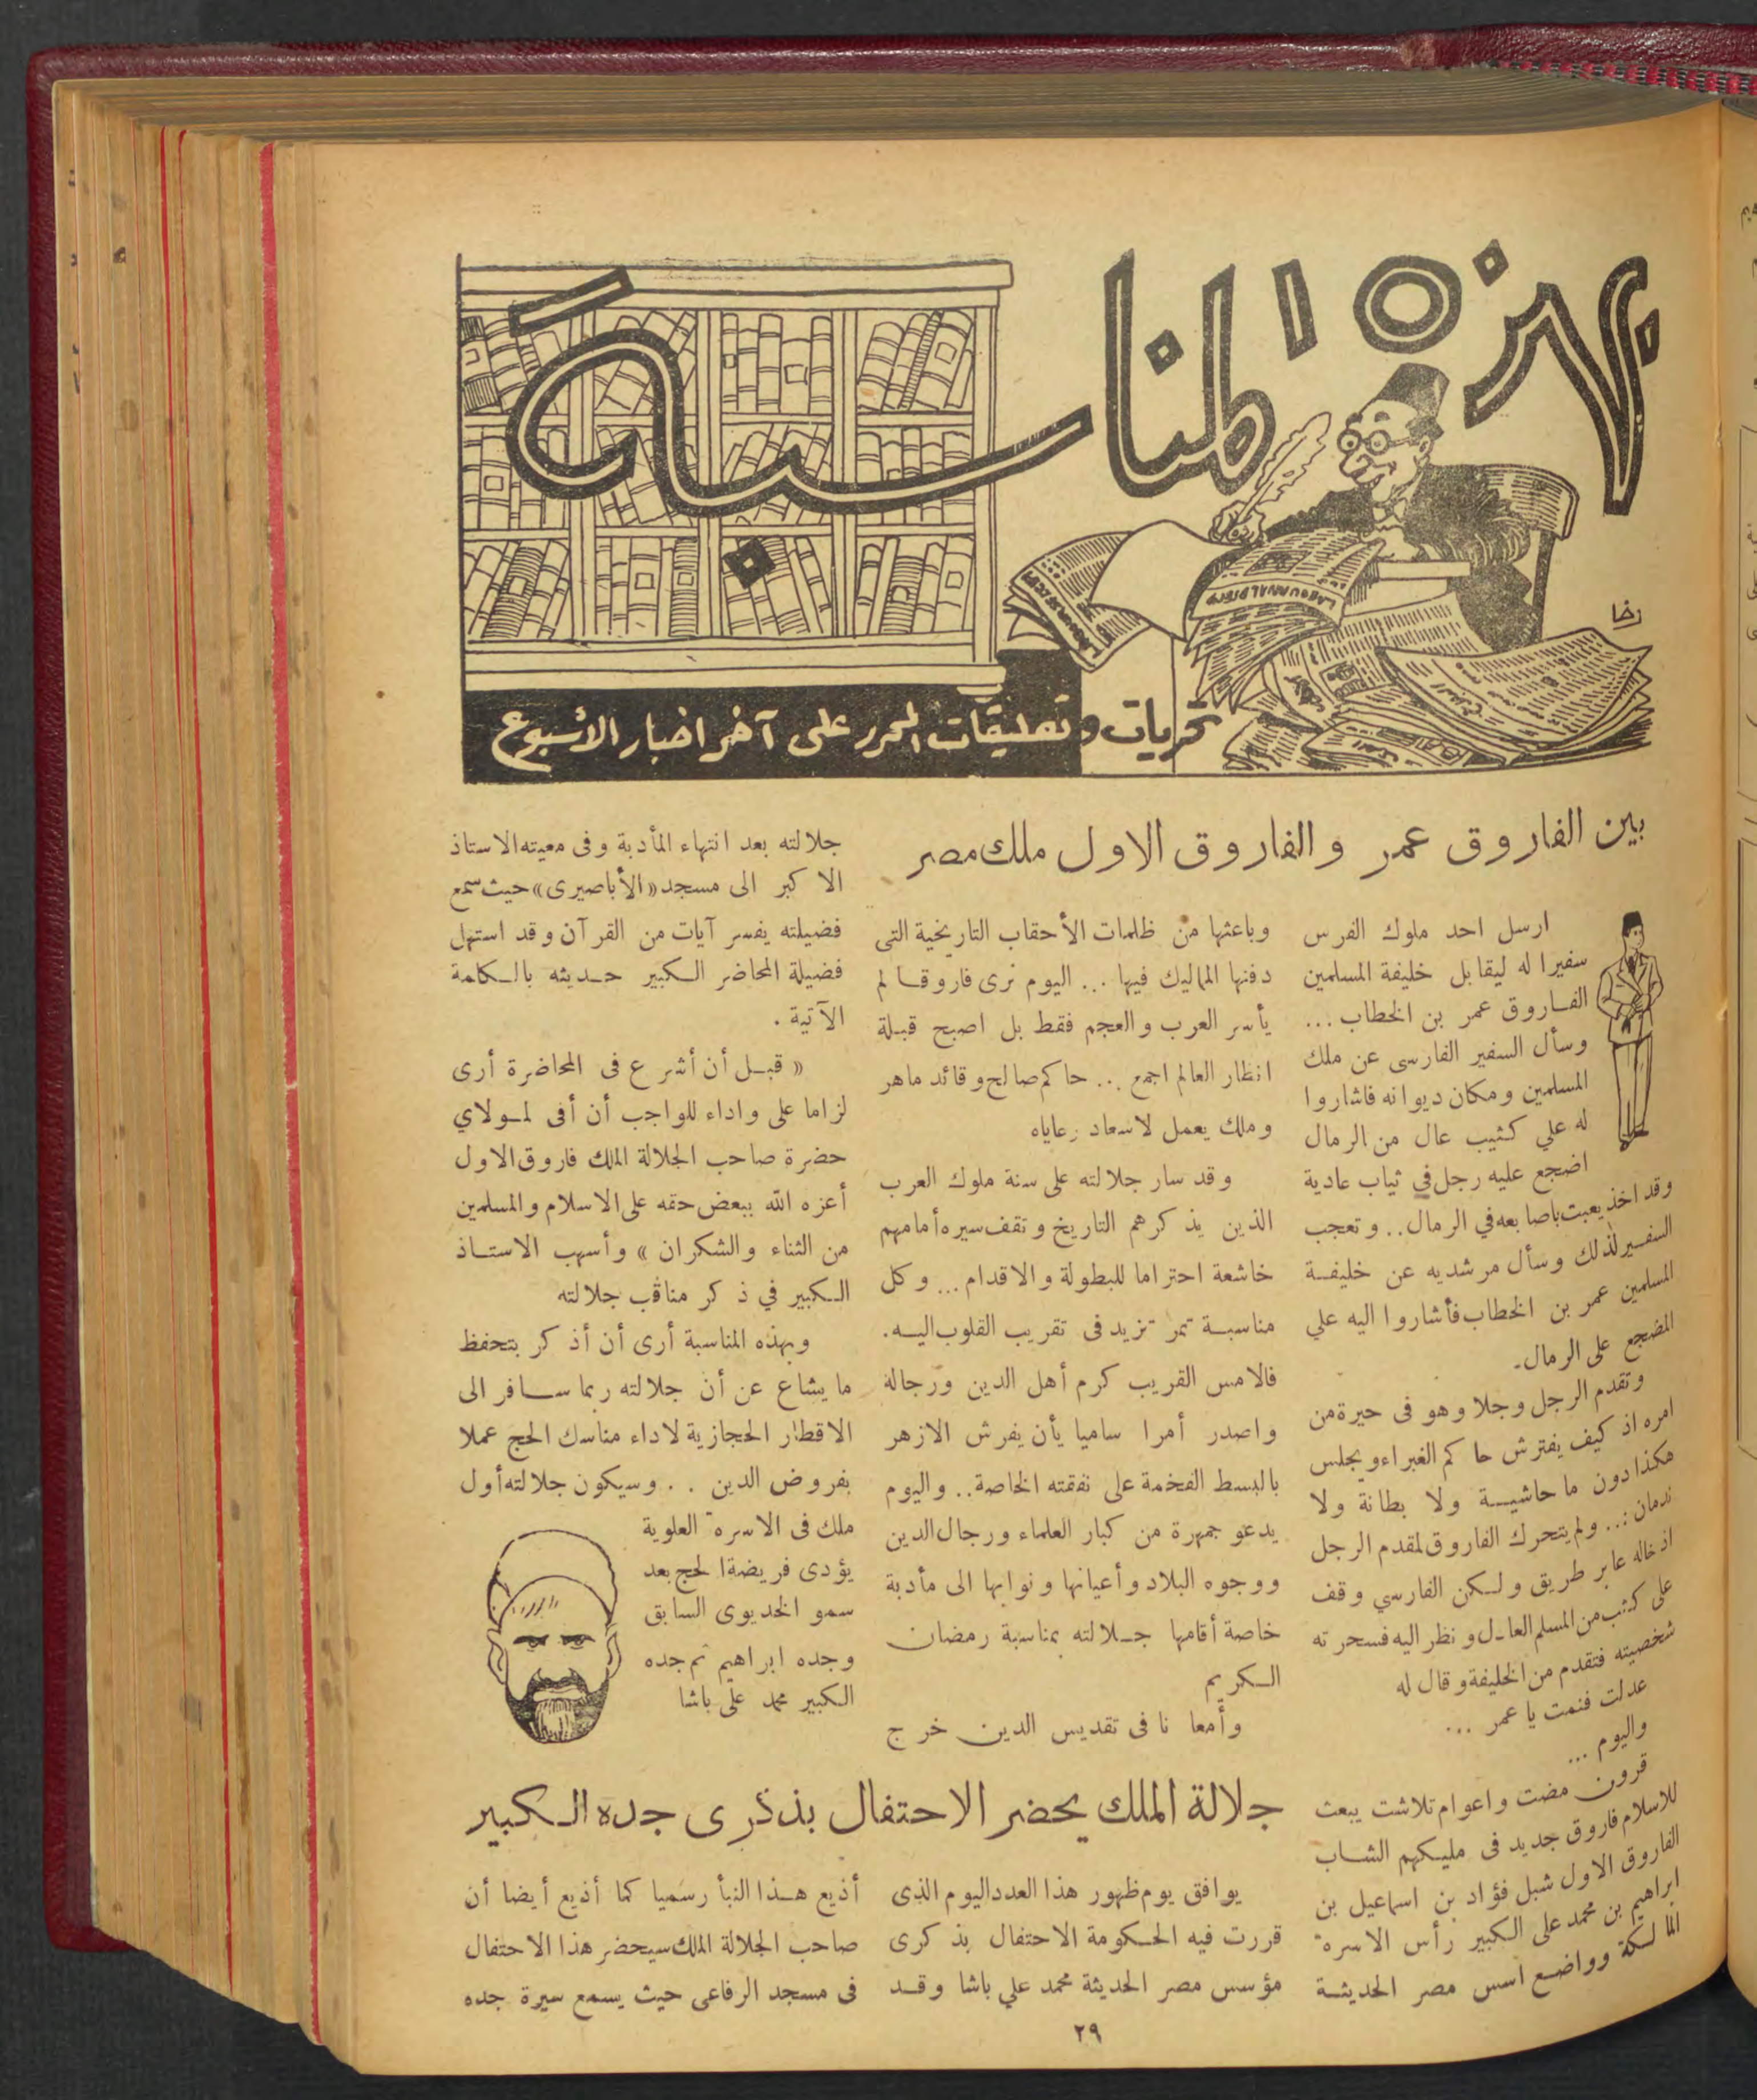 بهذه المناسبة
رخا
تحريات وتعليقات المحرر على آخر اخبار الأسبوع
بين الفاروق عمر والفاروق الاول ملك مصر
ارسل احد ملوك الفرس
سفيرا له ليقابل خليفة المسلمين
الفاروق عمر بن الخطاب ...
وسأل السفير الفارسى عن ملك
المسلمين ومكان ديوانه فاشاروا
له علي كثيب عال من الرمال
اضجع عليه رجل في ثياب عادية
وقد اخذ يعبث باصابعه في الرمال .. وتعجب
السفير لذلك وسأل مرشديه عن خليفة
المسلمين عمر بن الخطاب فأشاروا اليه علي
المضجع على الرمال.
وتقدم الرجل وجلا وهو فى حيرة من
امره اذ كيف يفترش حاكم الغبراء ويجلس
هكذا دون ما حاشية ولا بطانة ولا
ندمان :.. ولم يتحرك الفاروق لمقدم الرجل
اذ خاله عابر طريق ولكن الفارسي وقف
على كثب من المسلم العادل ونظر اليه فسحرته
شخصيته فتقدم من الخليفة وقال له
عدلت فنمت يا عمر ...
واليوم ...
قرون مضت واعوام تلاشت يبعث
للاسلام فاروق جديد فى مليكهم الشاب
الفاروق الاول شبل فؤاد بن اسماعيل بن
ابراهيم بن محمد على الكبير رأس الاسره
المالكة وواضع اسس مصر الحديثة
وباعثها من ظلمات الأحقاب التاريخية التى
دفنها المماليك فيها ... اليوم نرى فاروقا لم
يأسر العرب والعجم فقط بل اصبح قبلة
انظار العالم اجمع ... حاكم صالح وقائد ماهر
وملك يعمل لاسعاد رعاياه
وقد سار جلالته على سنة ملوك العرب
الذين يذكرهم التاريخ وتقف سيره أمامهم
خاشعة احتراما للبطولة والاقدام ... وكل
مناسبة تمر تزيد فى تقريب القلوب اليه.
فالامس القريب كرم أهل الدين ورجاله
واصدر أمرا ساميا يأن يفرش الازهر
بالبسط الفخمة على نفقته الخاصة .. واليوم
يدعو جمهرة من كبار العلماء ورجال الدين
ووجوه البلاد وأعيانها ونوابها الى مأدبة
خاصة أقامها جلالته بمناسبة رمضان
الكريم
وأمعا نا فى تقديس الدين خرج
جلالته بعد انتهاء المأدبة وفى معيته الاستاذ
الاكبر الى مسجد «الأباصيرى» حيث سمع
فضيلته يفسر آيات من القرآن وقد استهل
فضيلة المحاضر الكبير حديثه بالكامة
الآتية .
« قبل أن أشرع فى المحاضرة أرى
لزاما على واداء للواجب أن أفى لمولاي
حضرة صاحب الجلالة الملك فاروق الاول
أعزه الله ببعض حقه على الاسلام والمسلمين
من الثناء والشكران » وأسهب الاستاذ
الكبير في ذكر مناقب جلالته
وبهذه المناسبة أرى أن أذكر بتحفظ
ما يشاع عن أن جلالته ربما سافر الى
الاقطار الحجازية لاداء مناسك الحج عملا
بفروض الدين . . وسيكون جلالته أول
ملك فى الاسره العلوية
يؤدى فريضة الحج بعد
سمو الخديوى السابق
وجده ابراهيم ثم جده
الكبير محمد على باشا
جلالة الملك يحضر الاحتفال بذكرى جده الكبير
يوافق يوم ظهور هذا العدد اليوم الذى
قررت فيه الحكومة الاحتفال بذكرى
مؤسس مصر الحديثة محمد علي باشا وقد
أذيع هذا النبأ رسميا كما أذيع أيضا أن
صاحب الجلالة الملك سيحضر هذا الاحتفال
فى مسجد الرفاعى حيث يسمع سيرة جده
٢٩